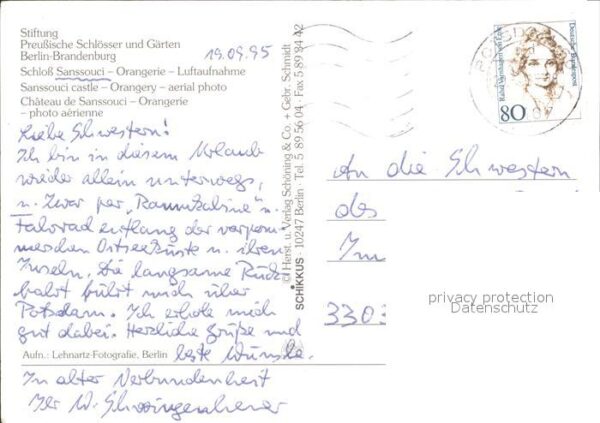 Stiftung
Preußische Schlösser und Gärten
Berlin-Brandenburg
19.09.95
Schloß Sanssouci – Orangerie – Luftaufnahme
Sanssouci castle – Orangery – aerial photo
Château de Sanssouci – Orangerie
– photo aérienne
Liebe Schwestern!
Ich bin in diesem Urlaub
wieder allein unterwegs,
u. zwar per „Raumkabine“ u.
Fahrrad entlang der vorpom-
merschen Ostseeküste u. ihren
Inseln. Die langsame Rück-
fahrt führt mich über
Potsdam. Ich erhole mich
gut dabei. Herzliche Grüße und
beste Wünsche.
Aufn.: Lehnartz-Fotografie, Berlin
In alter Verbundenheit
Ihr W.
© Herst. u. Verlag Schöning & Co. + Gebr. Schmidt
SCHIKKUS · 10247 Berlin · Tel. 5 89 56 04 · Fax 5 89 84 42
Deutsche Bundespost
Rahel Varnhagen von Ense
80
An die Schwestern
des
Im
330
privacy protection
Datenschutz